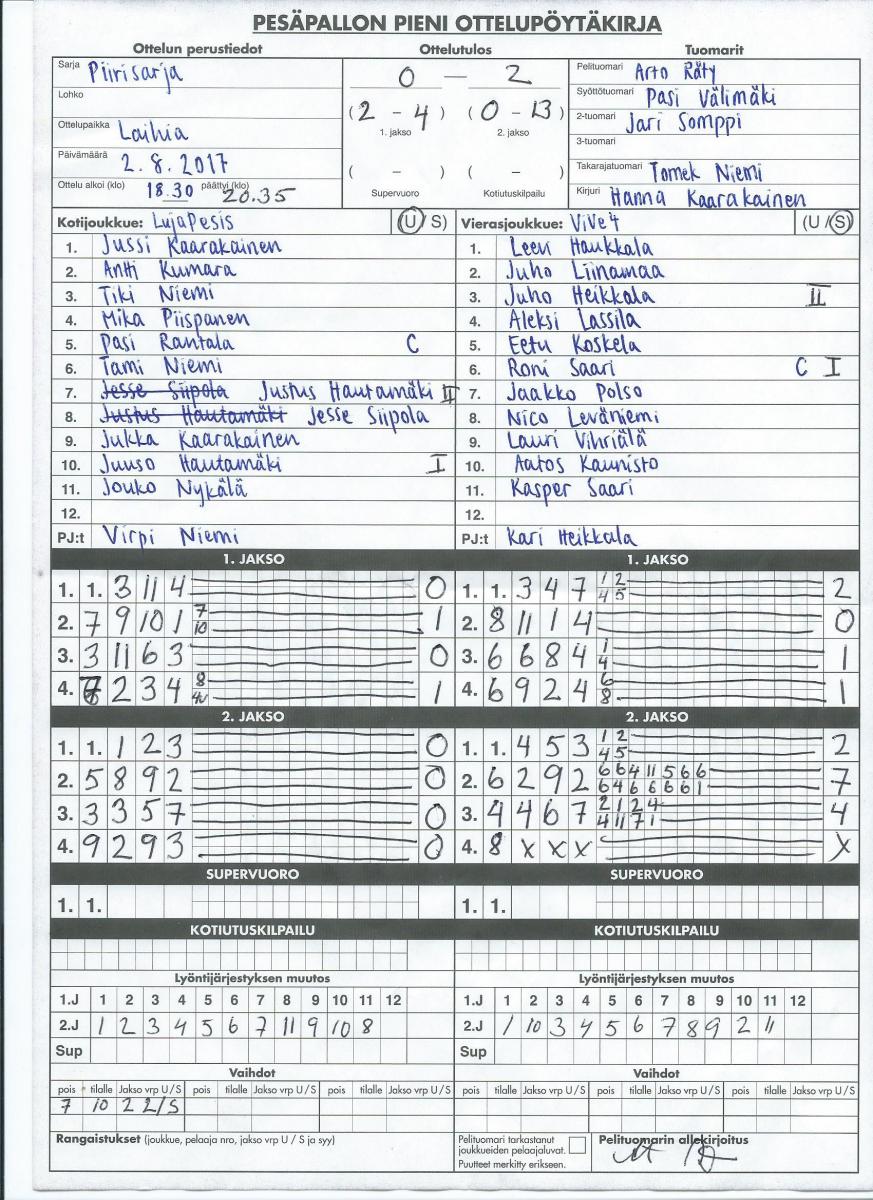 PESÄPALLON PIENI OTTELUPÖYTÄKIRJA
Ottelun perustiedot Ottelutulos Tuomarit
Sarja Piirisarja
Lohko
Ottelupaikka Laihia
Päivämäärä 2.8.2017
Ottelu alkoi (klo) 18.30 päättyi (klo) 20.35
0 – 2
(2 - 4) (0 - 13)
1. jakso 2. jakso
( - ) ( - )
Supervuoro Kotiutuskilpailu
Pelituomari Arto Räty
Syöttötuomari Pasi Välimäki
2-tuomari Jari Somppi
3-tuomari
Takarajatuomari Tomek Niemi
Kirjuri Hanna Kaarakainen
Kotijoukkue: LujaPesis (U/S)
1. Jussi Kaarakainen
2. Antti Kumara
3. Tiki Niemi
4. Mika Piispanen
5. Pasi Rantala C
6. Tami Niemi
7. Jesse Siipola Justus Hautamäki II
8. Justus Hautamäki Jesse Siipola
9. Jukka Kaarakainen
10. Juuso Hautamäki I
11. Jouko Nykälä
12.
PJ:t Virpi Niemi
Vierasjoukkue: ViVe4 (U/S)
1. Leevi Haukkala
2. Juho Liinamaa
3. Juho Heikkala II
4. Aleksi Lassila
5. Eetu Koskela
6. Roni Saari C I
7. Jaakko Polso
8. Nico Leväniemi
9. Lauri Vihriälä
10. Aatos Kaunisto
11. Kasper Saari
12.
PJ:t Kari Heikkala
1. JAKSO
1. 1. 3 11 4 0
2. 7 9 10 1 7 10 1
3. 3 11 6 3 0
4. 2 3 4 8 1
1. JAKSO
1. 1. 3 4 7 1 2 4 5 2
2. 8 11 1 4 0
3. 6 6 8 4 1 4 1
4. 6 9 2 4 6 8 1
2. JAKSO
1. 1. 1 2 3 0
2. 5 8 9 2 0
3. 3 3 5 7 0
4. 9 2 9 3 0
2. JAKSO
1. 1. 4 5 3 1 2 4 5 2
2. 6 2 9 2 6 6 4 11 5 6 6 6 4 6 6 6 6 1 7
3. 4 4 6 7 2 1 2 4 4 11 7 1 4
4. 8 x x x x
SUPERVUORO SUPERVUORO
1. 1. 1. 1.
KOTIUTUSKILPAILU KOTIUTUSKILPAILU
Lyöntijärjestyksen muutos
1.J 1 2 3 4 5 6 7 8 9 10 11 12
2.J 1 2 3 4 5 6 7 11 9 10 8
Sup
Lyöntijärjestyksen muutos
1.J 1 2 3 4 5 6 7 8 9 10 11 12
2.J 1 10 3 4 5 6 7 8 9 2 11
Sup
Vaihdot Vaihdot
pois tilalle Jakso vrp U/S pois tilalle Jakso vrp U/S pois tilalle Jakso vrp U/S pois tilalle Jakso vrp U/S pois tilalle Jakso vrp U/S pois tilalle Jakso vrp U/S
7 10 2 2/S
Rangaistukset (joukkue, pelaaja nro, jakso vrp U / S ja syy)
Pelituomari tarkastanut
joukkueiden pelaajaluvat.
Puutteet merkitty erikseen.
Pelituomarin allekirjoitus